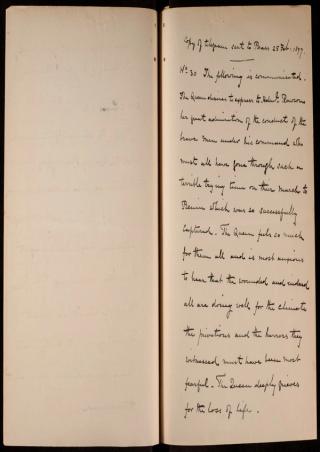 Copy of telegram sent to Brass 25 Feb. 1897.
No. 30 The following is communicated.
The Queen desires to express to Admiral Rawsons
her great admiration of the conduct of the
brave men under his command who
must all have gone through such a
terrible trying time on their march to
Benin which was so successfully
captured. The Queen feels so much
for them all and is most anxious
to hear that the wounded and indeed
all are doing well for the climate
the privations and the horrors they
witnessed must have been most
fearful. The Queen deeply grieves
for the loss of life.